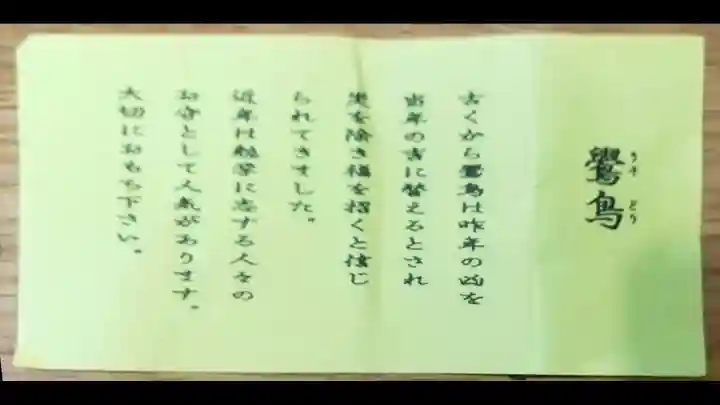 鷽鳥
うそ どり
古くから鷽鳥は昨年の凶を
当年の吉に替えるとされ
災を除き福を招くと信じ
られてきました。
近年は勉学に志する人々の
お守として人気があります。
大切におもち下さい。